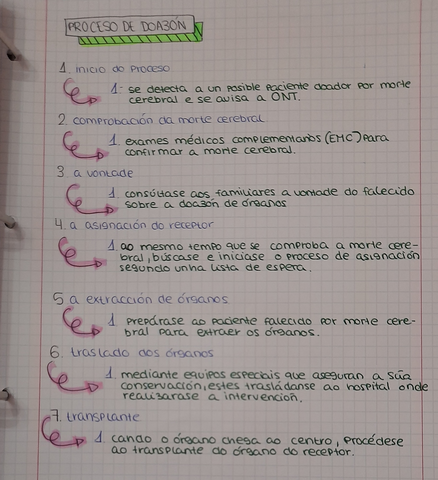 PROCESO DE DOAZÓN
1. inicio do proceso
1- se detecta a un posible paciente doador por morte
cerebral e se avisa a ONT.
2. comprobación da morte cerebral
1. exames médicos complementarios (EMC) para
confirmar a morte cerebral.
3. a vontade
1. consúltase aos familiares a vontade do falecido
sobre a doazón de órganos
4. a asignación do receptor
1 ao mesmo tempo que se comproba a morte cere-
bral, búscase e iníciase o proceso de asignación
segundo unha lista de espera.
5 a extracción de órganos
1 prepárase ao paciente falecido por morte cere-
bral para extraer os órganos.
6. traslado dos órganos
1. mediante equipos especiais que aseguran a súa
conservación, estes trasládanse ao hospital onde
realizarase a intervención.
7. transplante
1. cando o órgano chega ao centro, procédese
ao transplante do órgano do receptor.